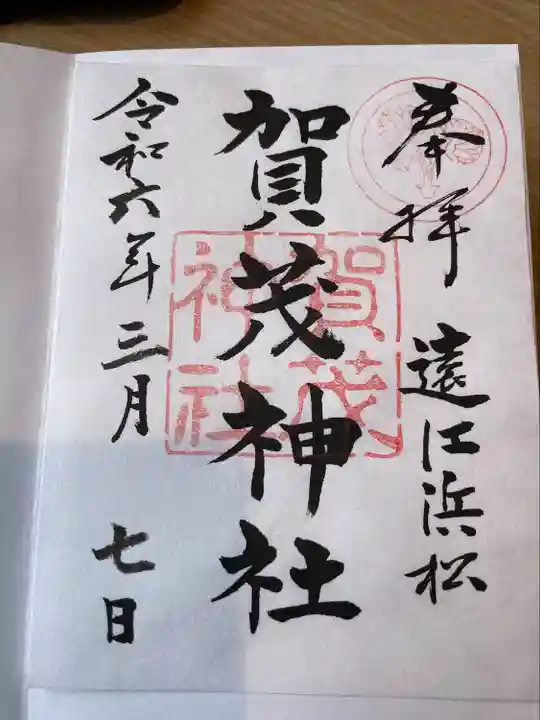 奉拝 遠江浜松
賀茂神社
賀茂
神社
令和六年三月 七日